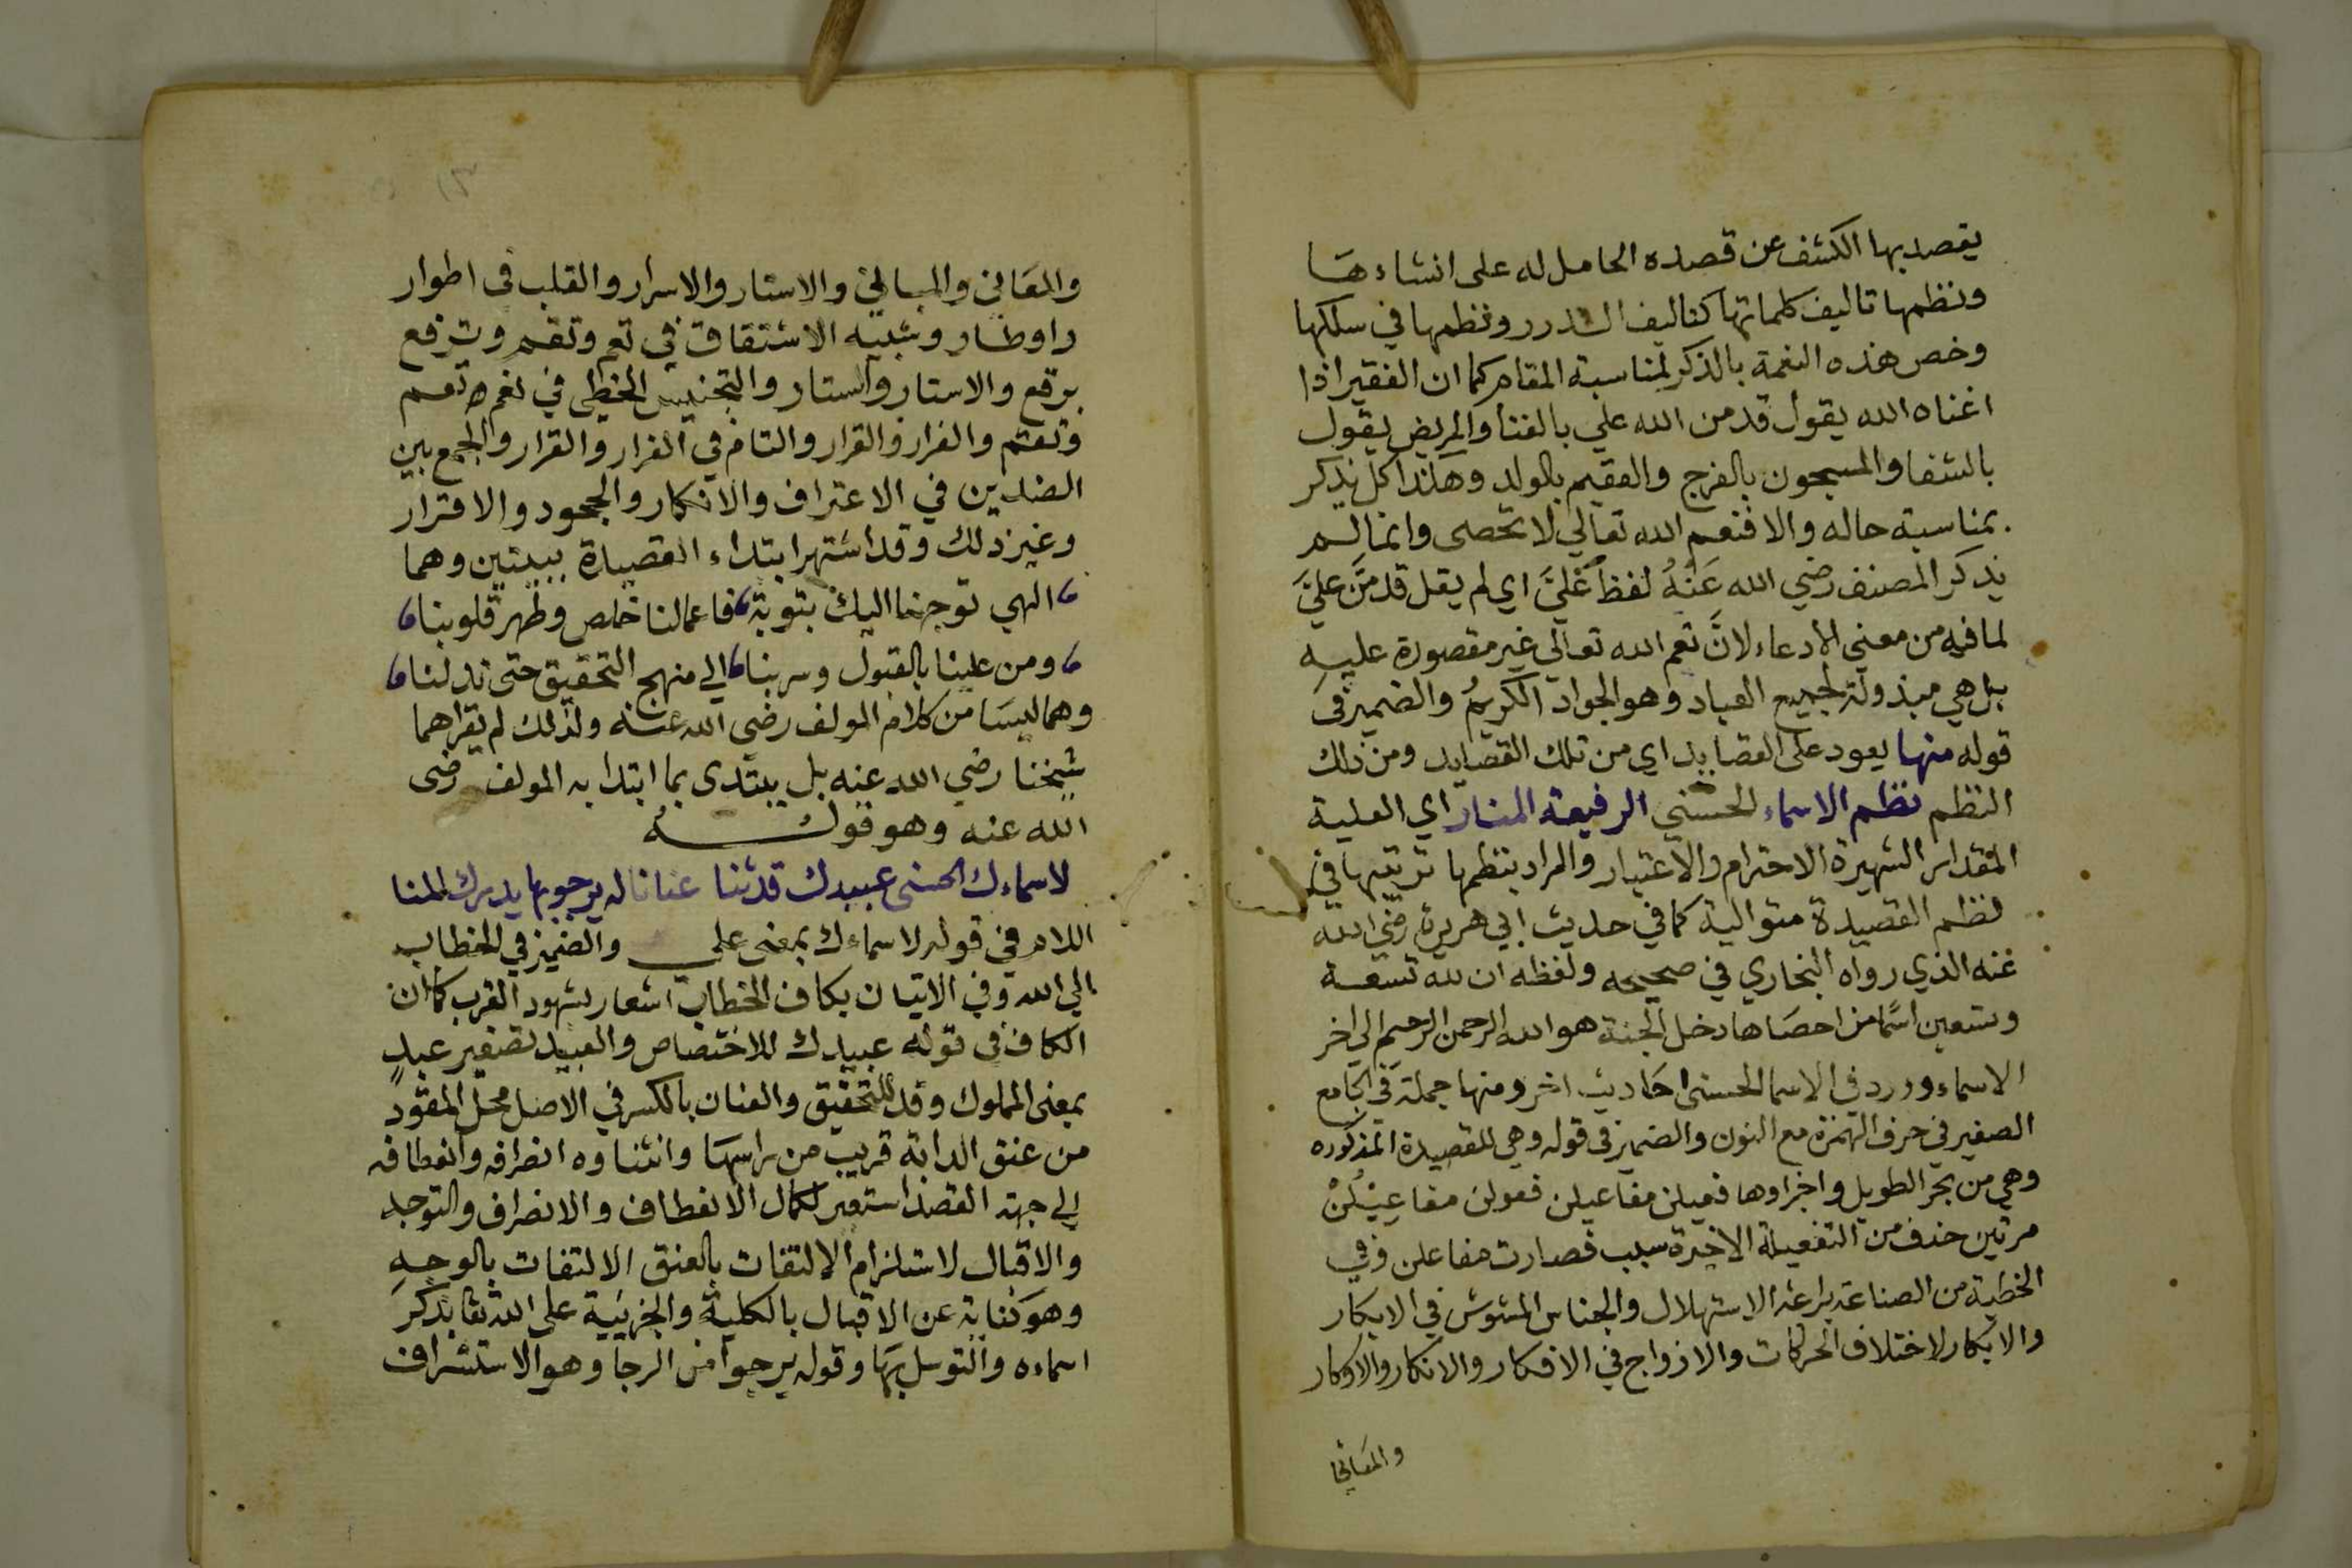 يقصد بها الكشف عن قصده الحامل له على انشاءها
ونظمها تاليف كلماتها كتاليف الدرر ونظمها في سلكها
وخص هذه النعمة بالذكر لمناسبة المقام كما ان الفقير اذا
اغناه الله يقول قد من الله علي بالغنا والمريض يقول
بالشفا والمسجون بالفرج والعقيم بالولد وهكذا كل يذكر
بمناسبة حاله والا فنعم الله تعالي لا تحصى وانما لم
يذكر المصنف رضي الله عَنْهُ لفظ عَليَّ اي لم يقل قد مَنَّ عليَّ
لما فيه من معني الادعاء لانَّ نعم الله تعالي غير مقصورة عليه
بل هي مبذولة لجميع العباد وهو الجواد الكريمُ والضمير في
قوله منها يعود على القصايد اي من تلك القصايد ومن ذلك
النظم نظم الاسماء الحسني الرفيعة المنار اي العلية
المقدار الشهيرة الاحترام والاعتبار والمراد بنظمها ترتيبها في
نظم القصيدة متوالية كما في حديث ابي هريرة رضي الله
عنه الذي رواه البخاري في صحيحه ولفظه ان لله تسعة
وتسعين اسمًا من احصاها دخل الجنة هو الله الرحمن الرحيم الي اخر
الاسماء وورد في الاسما الحسنى احاديث اخر ومنها جملة في الجامع
الصغير في حرف الهمزة مع النون والضمير في قوله وهي للقصيدة المذكوره
وهي من بحر الطويل واجزاوها فعيلن مفاعيلن فعولن مفاعِيْلُنْ
مرتين حذف من التفعيلة الاخيرة سبب فصارت مفاعلن وفي
الخطبة من الصناعة براعة الاستهلال والجناس المشوش في الابكار
والابكار لاختلاف الحركات والازواج في الافكار والانكار والاوكار
والمعاني
والمعَاني والمباني والاستار والاسرار والقلب في اطوار
واوطار وشبيه الاشتقاق في تعم وتقم وترفع
برقع والاستار والستار والتجنيس الخطي في نعم وتعم
وتعتم والفرار والقرار والتام في الفرار والقرار والجمع بين
الضدين في الاعتراف والانكار والجحود والاقرار
وغير ذلك وقد اشتهر ابتداء القصيدة ببيتين وهما
الهي توجهنا اليك بتوبة فاعمالنا خلص وطهر قلوبنا
ومن علينا بالقبول وسر بنا الي منهج التحقيق حتى تدلنا
وهما ليسَا من كلام المولف رضي الله عنه ولذلك لم يقراهما
شيخنا رضي الله عنه بل يبتدى بما ابتدا به المولف رضى
الله عنه وهو قوله
لاسماءك الحسنى عبيدك قد ثنا عنانا له يرجو بها يدرك المنا
اللام في قوله لاسماءك بمعنى على والضمير في الخطاب
الي الله وفي الاتيان بكاف الخطاب اشعار بشهود القرب كما ان
الكاف في قوله عبيدك للاختصاص والعبيد تصغير عبدٍ
بمعنى المملوك وقد للتحقيق والعنان بالكسر في الاصل محل المقود
من عنق الدابة قريب من راسها وانثناوه انصرافه وانعطافه
الي جهة القصد استعير لكمال الانعطاف والانصراف والتوجه
والاقبال لاستلزام الالتفات بالعنق الالتفات بالوجهِ
وهوَ كناية عن الاقبال بالكلية والجزئية على الله تعا بذكر
اسماءه والتوسل بها وقوله يرجو من الرجا وهو الاستشراف